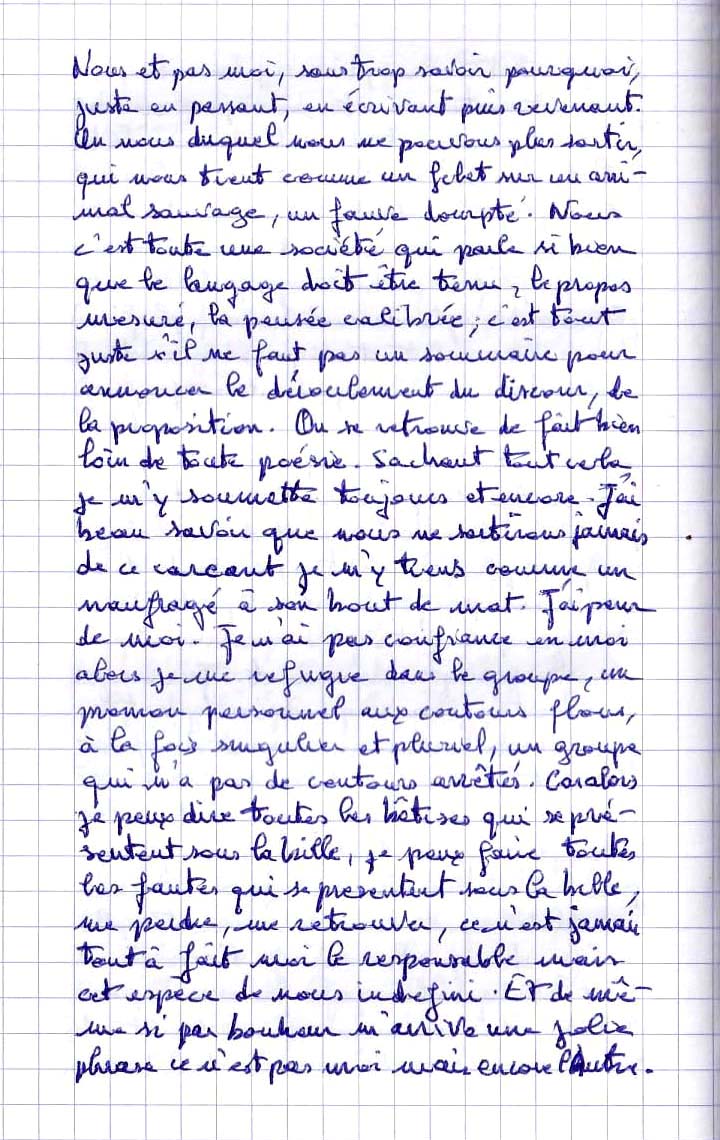 Nous et pas moi, sans trop savoir pourquoi,
juste en passant, en écrivant puis revenant.
Un nous duquel nous ne pouvons plus sortir,
qui nous tient comme un filet sur un ani-
mal sauvage, un fauve dompté. Nous
c'est toute une société qui parle si bien
que le langage doit être tenu, le propos
mesuré, la pensée calibrée ; c'est tout
juste s'il ne faut pas un sommaire pour
annoncer le déroulement du discours, de
la proposition. On se retrouve de fait bien
loin de toute poésie. Sachant tout cela,
je m'y soumette toujours et encore. J'ai
beau savoir que nous ne sortirons jamais
de ce carcant je m'y tiens comme un
naufragé à son bout de mat. J'ai peur
de moi. Je n'ai pas confiance en moi
alors je me refugie dans le groupe, un
pronom personnel aux contours flous,
à la fois singulier et pluriel, un groupe
qui n'a pas de contours arrêtés. Car alors
je peux dire toutes les bêtises qui se pré-
sentent sous la bille, je peux faire toutes
les fautes qui se presentent sous la bille,
me perdre, me retrouver, ce n'est jamais
tout à fait moi le responsable mais
cet espèce de nous indefini. Et de mê-
me si par bonheur m'arrive une jolie
phrase ce n'est pas moi mais encore l'Autre.